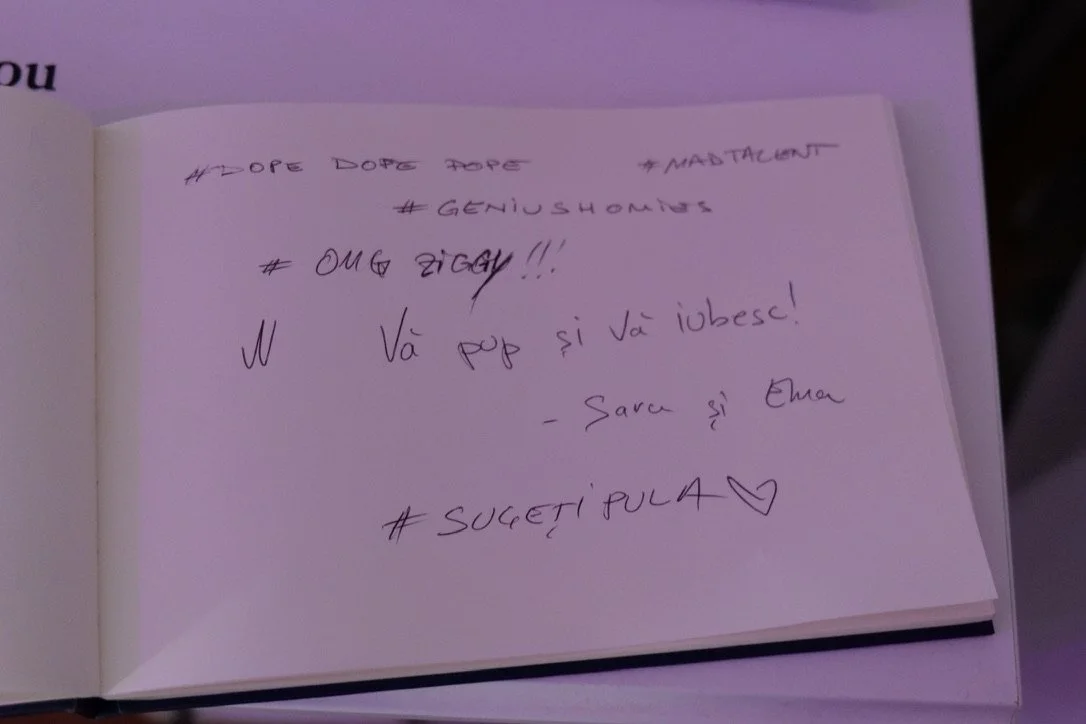 ou
#DOPE DOPE DOPE #MADTALENT
#GENIUSHOMIES
# OMG ZIGGY!!!
Vă pup și vă iubesc!
- Sara și Ema
#SUGEȚI PULA